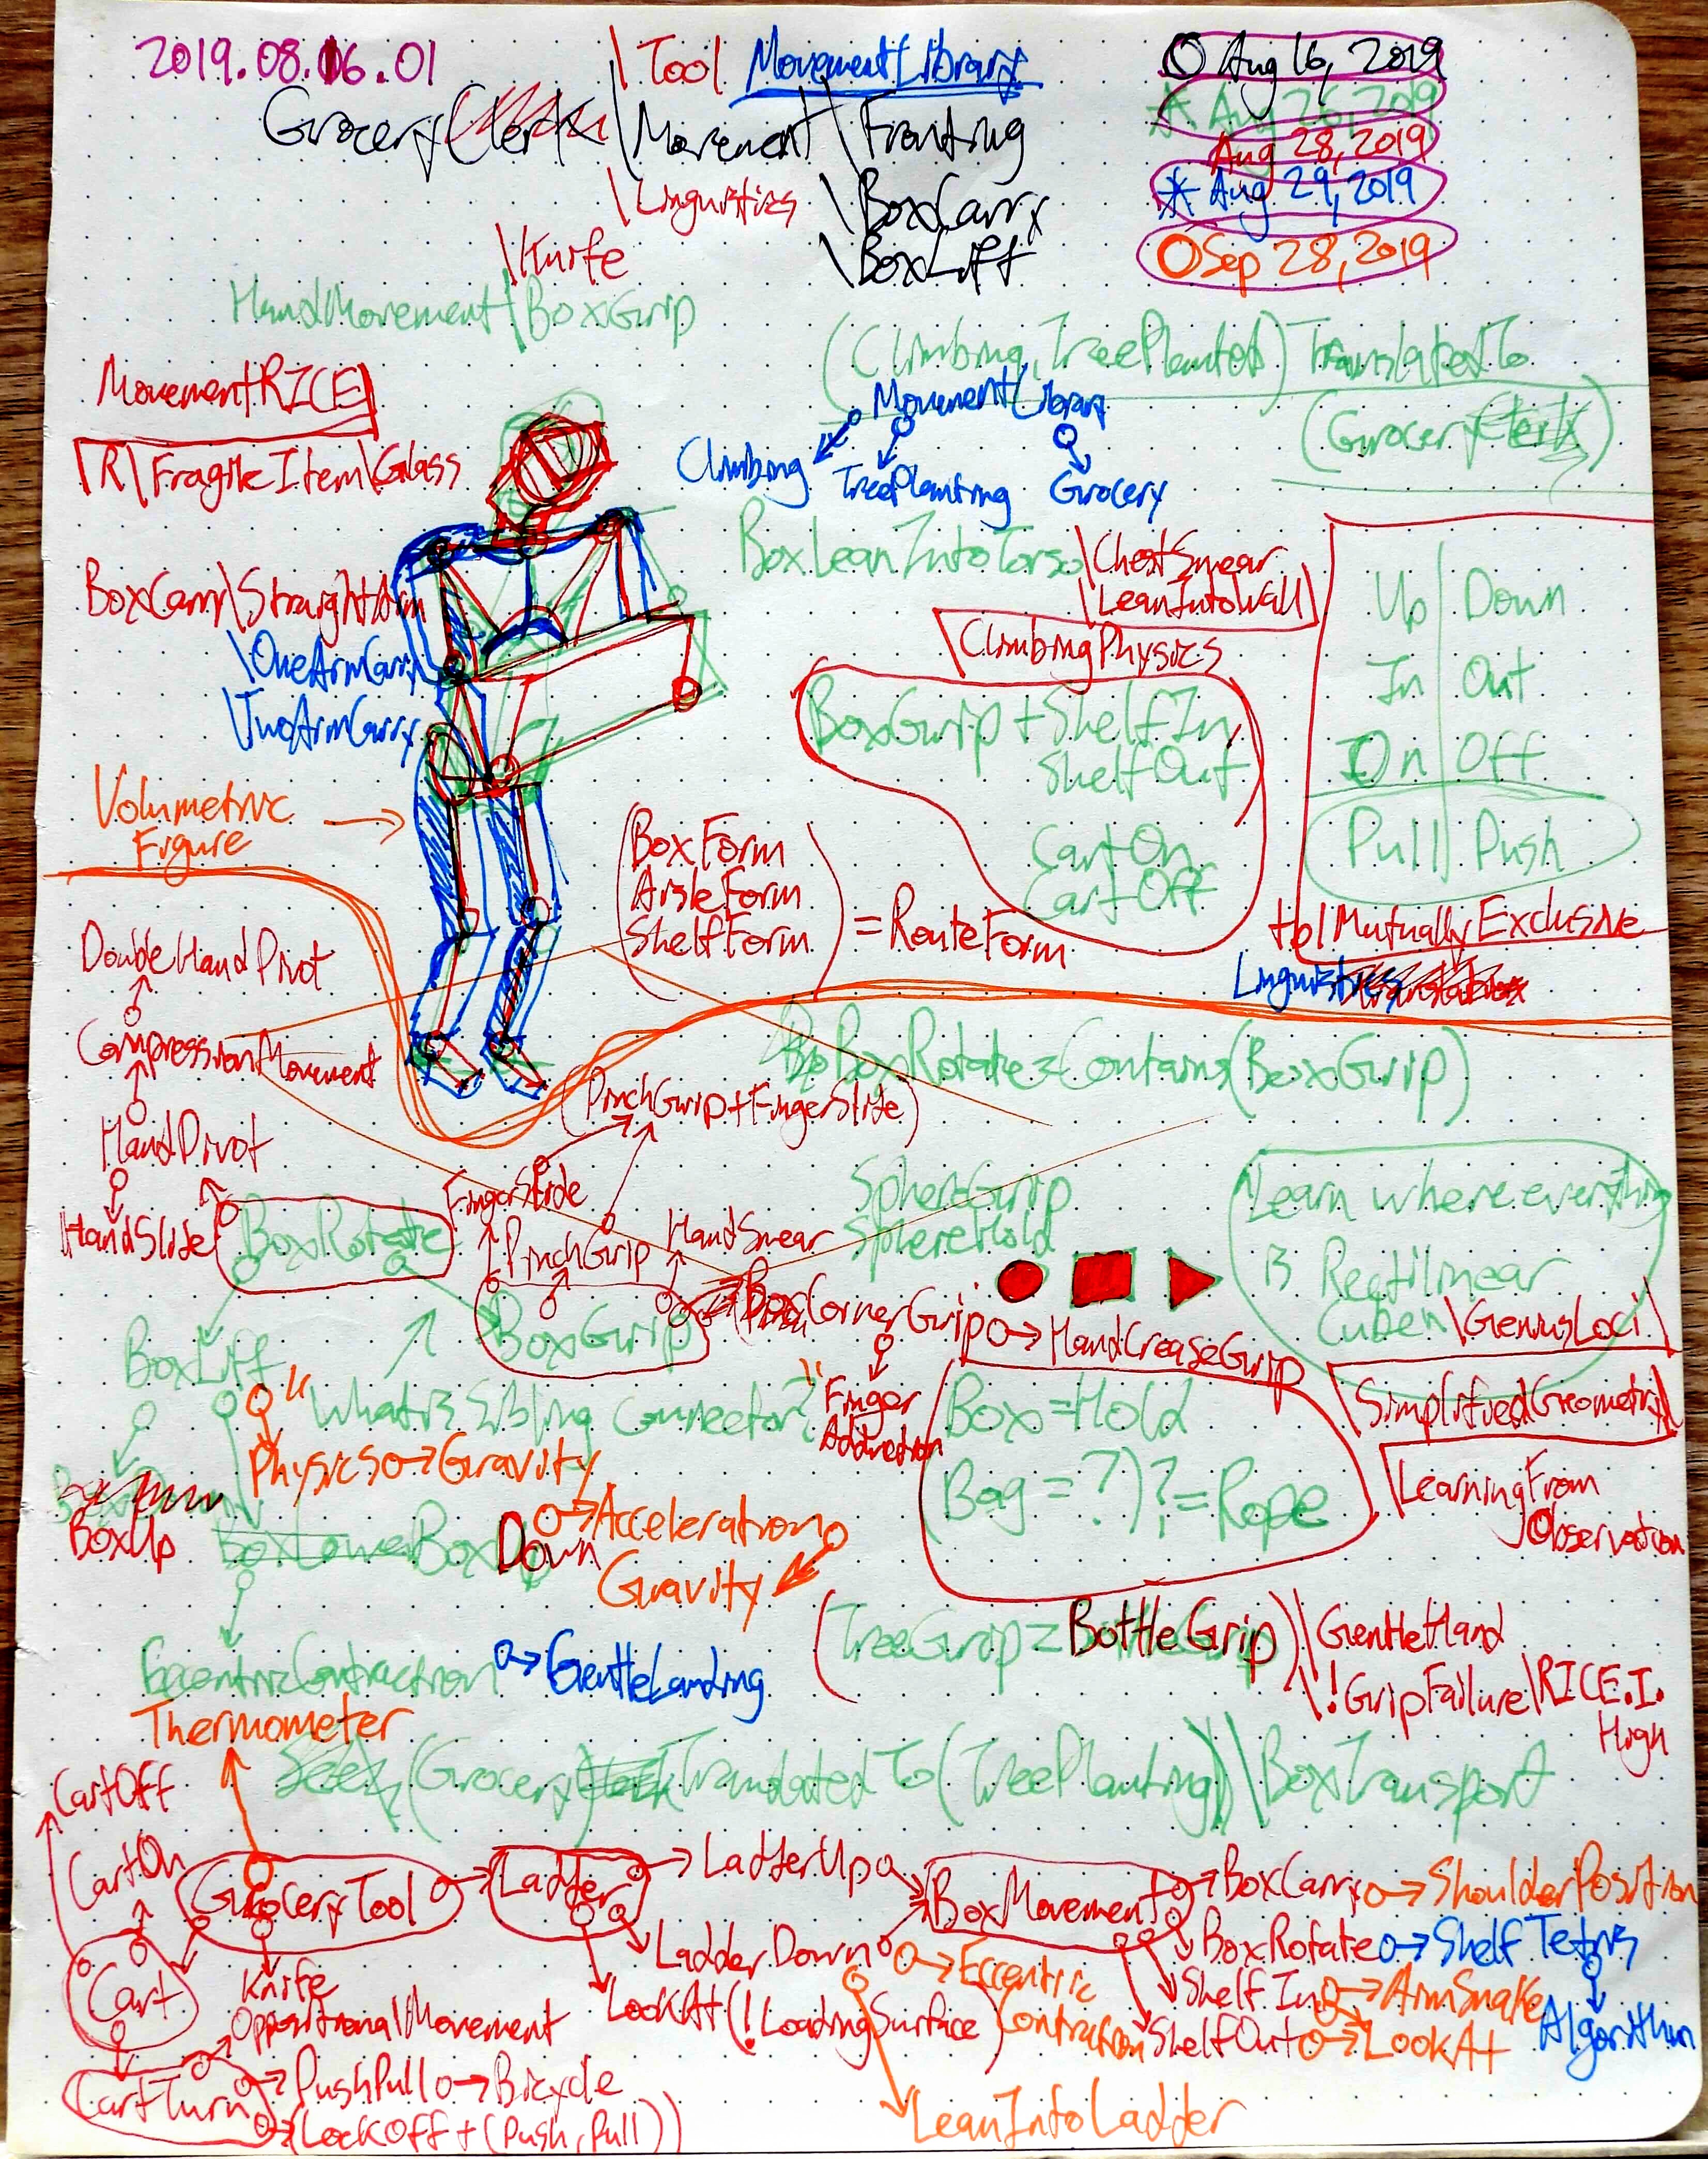 2019.08.16.01
\Tool MovementLibrary
Aug 16, 2019
GroceryClerk \Movement \Fronting
Aug 26, 2019
Aug 28, 2019
\Linguistics \BoxCarry
Aug 29, 2019
\Knife \BoxLift
Sep 28, 2019
HandMovement\BoxGrip
(Climbing, TreePlanter) TranslatedTo
(GroceryClerk)
MovementRICE
MovementLibrary
Climbing TreePlanting Grocery
R\FragileItem\Glass
BoxLeanIntoTorso \ChestSmear
\LeanIntoWall
\ClimbingPhysics
BoxCarry\StraightArm
\OneArmCarry
\TwoArmCarry
Up Down
In Out
On Off
Pull Push
BoxGrip + ShelfIn
ShelfOut
CartOn
CartOff
Volumetric
Figure
(BoxForm
AisleForm
ShelfForm) = RouteForm
MutuallyExclusive
Linguistics
DoubleHandPivot
CompressionMovement
HandPivot
HandSlide
BoxRotate=Contains(BoxGrip)
(PinchGrip+FingerSlide)
BoxRotate
FingerSlide
PinchGrip
HandSmear
SphereGrip
SphereHold
Learn where everything
is Rectilinear
Cuben \GeniusLoci
BoxGrip
BoxCornerGrip HandCreaseGrip
Finger
Adduction
\SimplifiedGeometry
\LearningFrom
Observation
BoxLift
"What is Sibling Connector?"
Physics Gravity
Box=Hold
(Bag = ?) ?= Rope
BoxUp
BoxLower BoxDown
Acceleration
Gravity
(TreeGrip = BottleGrip) \GentleHand
\!GripFailure\RICE.I.
High
EccentricContraction GentleLanding
Thermometer
(Grocery TranslatedTo (TreePlanting)) \BoxTransport
CartOff
CartOn
GroceryTool Ladder LadderUp BoxMovement BoxCarry ShoulderPosition
LadderDown Eccentric
Contraction
BoxRotate Shelf Tetris
Algorithm
Cart
Knife
LookAt(!LoadingSurface)
ShelfIn ArmSnake
ShelfOut LookAt
OppositionalMovement
CartTurn PushPull Bicycle
(LockOff + (Push, Pull))
LeanIntoLadder